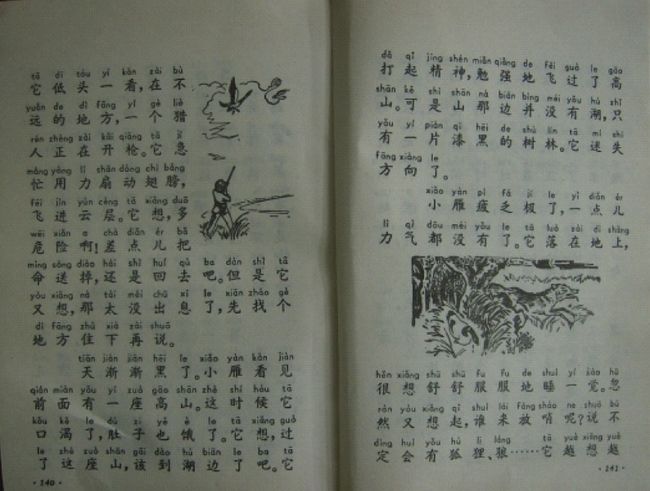 tā dī tóu yí kàn zài bù
它低头一看,在不
yuǎn de dì fāng yí gè liè
远的地方,一个猎
rén zhèng zài kāi qiāng tā jí
人正在开枪。它急
máng yòng lì shān dòng chì bǎng
忙用力扇动翅膀,
fēi jìn yún céng tā xiǎng duō
飞进云层。它想,多
wēi xiǎn a chà diǎn ér bǎ
危险啊!差点儿把
mìng sòng diào hái shì huí qù ba dàn shì tā
命送掉,还是回去吧。但是它
yòu xiǎng nà tài méi chū xi le xiān zhǎo gè
又想,那太没出息了,先找个
dì fāng zhù xià zài shuō
地方住下再说。
tiān jiàn jiàn hēi le xiǎo yàn kàn jiàn
天渐渐黑了。小雁看见
qián miàn yǒu yí zuò gāo shān zhè shí hòu tā
前面有一座高山。这时候它
kǒu kě le dù zi yě è le tā xiǎng guò
口渴了,肚子也饿了。它想,过
le zhè zuò shān gāi dào hú biān le ba tā
了这座山,该到湖边了吧。它
·140·
dǎ qǐ jīng shén miǎn qiǎng de fēi guò le gāo
打起精神,勉强地飞过了高
shān kě shì shān nà biān bìng méi yǒu hú zhǐ
山。可是山那边并没有湖,只
yǒu yí piàn qī hēi de shù lín tā mí shī
有一片漆黑的树林。它迷失
fāng xiàng le
方向了。
xiǎo yàn pí fá jí le yì diǎn ér
小雁疲乏极了,一点儿
lì qì dōu méi yǒu le tā luò zài dì shàng
力气都没有了。它落在地上,
hěn xiǎng shū shū fu fu de shuì yí jiào hū
很想舒舒服服地睡一觉。忽
rán yòu xiǎng qǐ shuí lái fàng shào ne shuō bú
然又想起,谁来放哨呢?说不
dìng huì yǒu hú li láng tā yuè xiǎng yuè
定会有狐狸、狼……它越想越
·141·